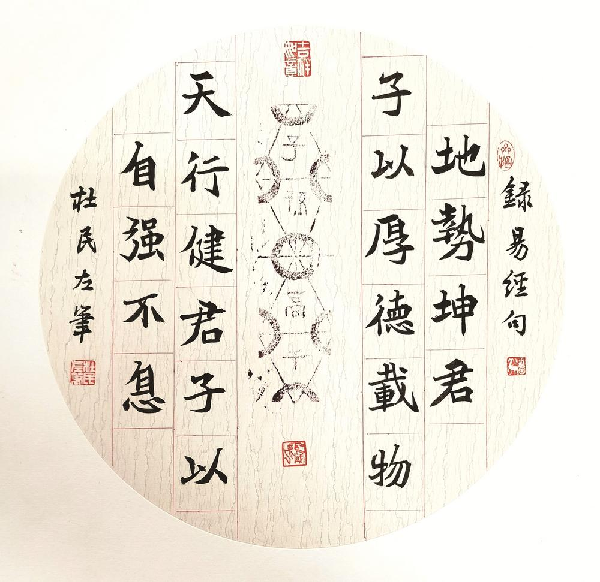 錄易經句
地勢坤君
子以厚德載物
天行健君子以
自强不息
杜民左筆